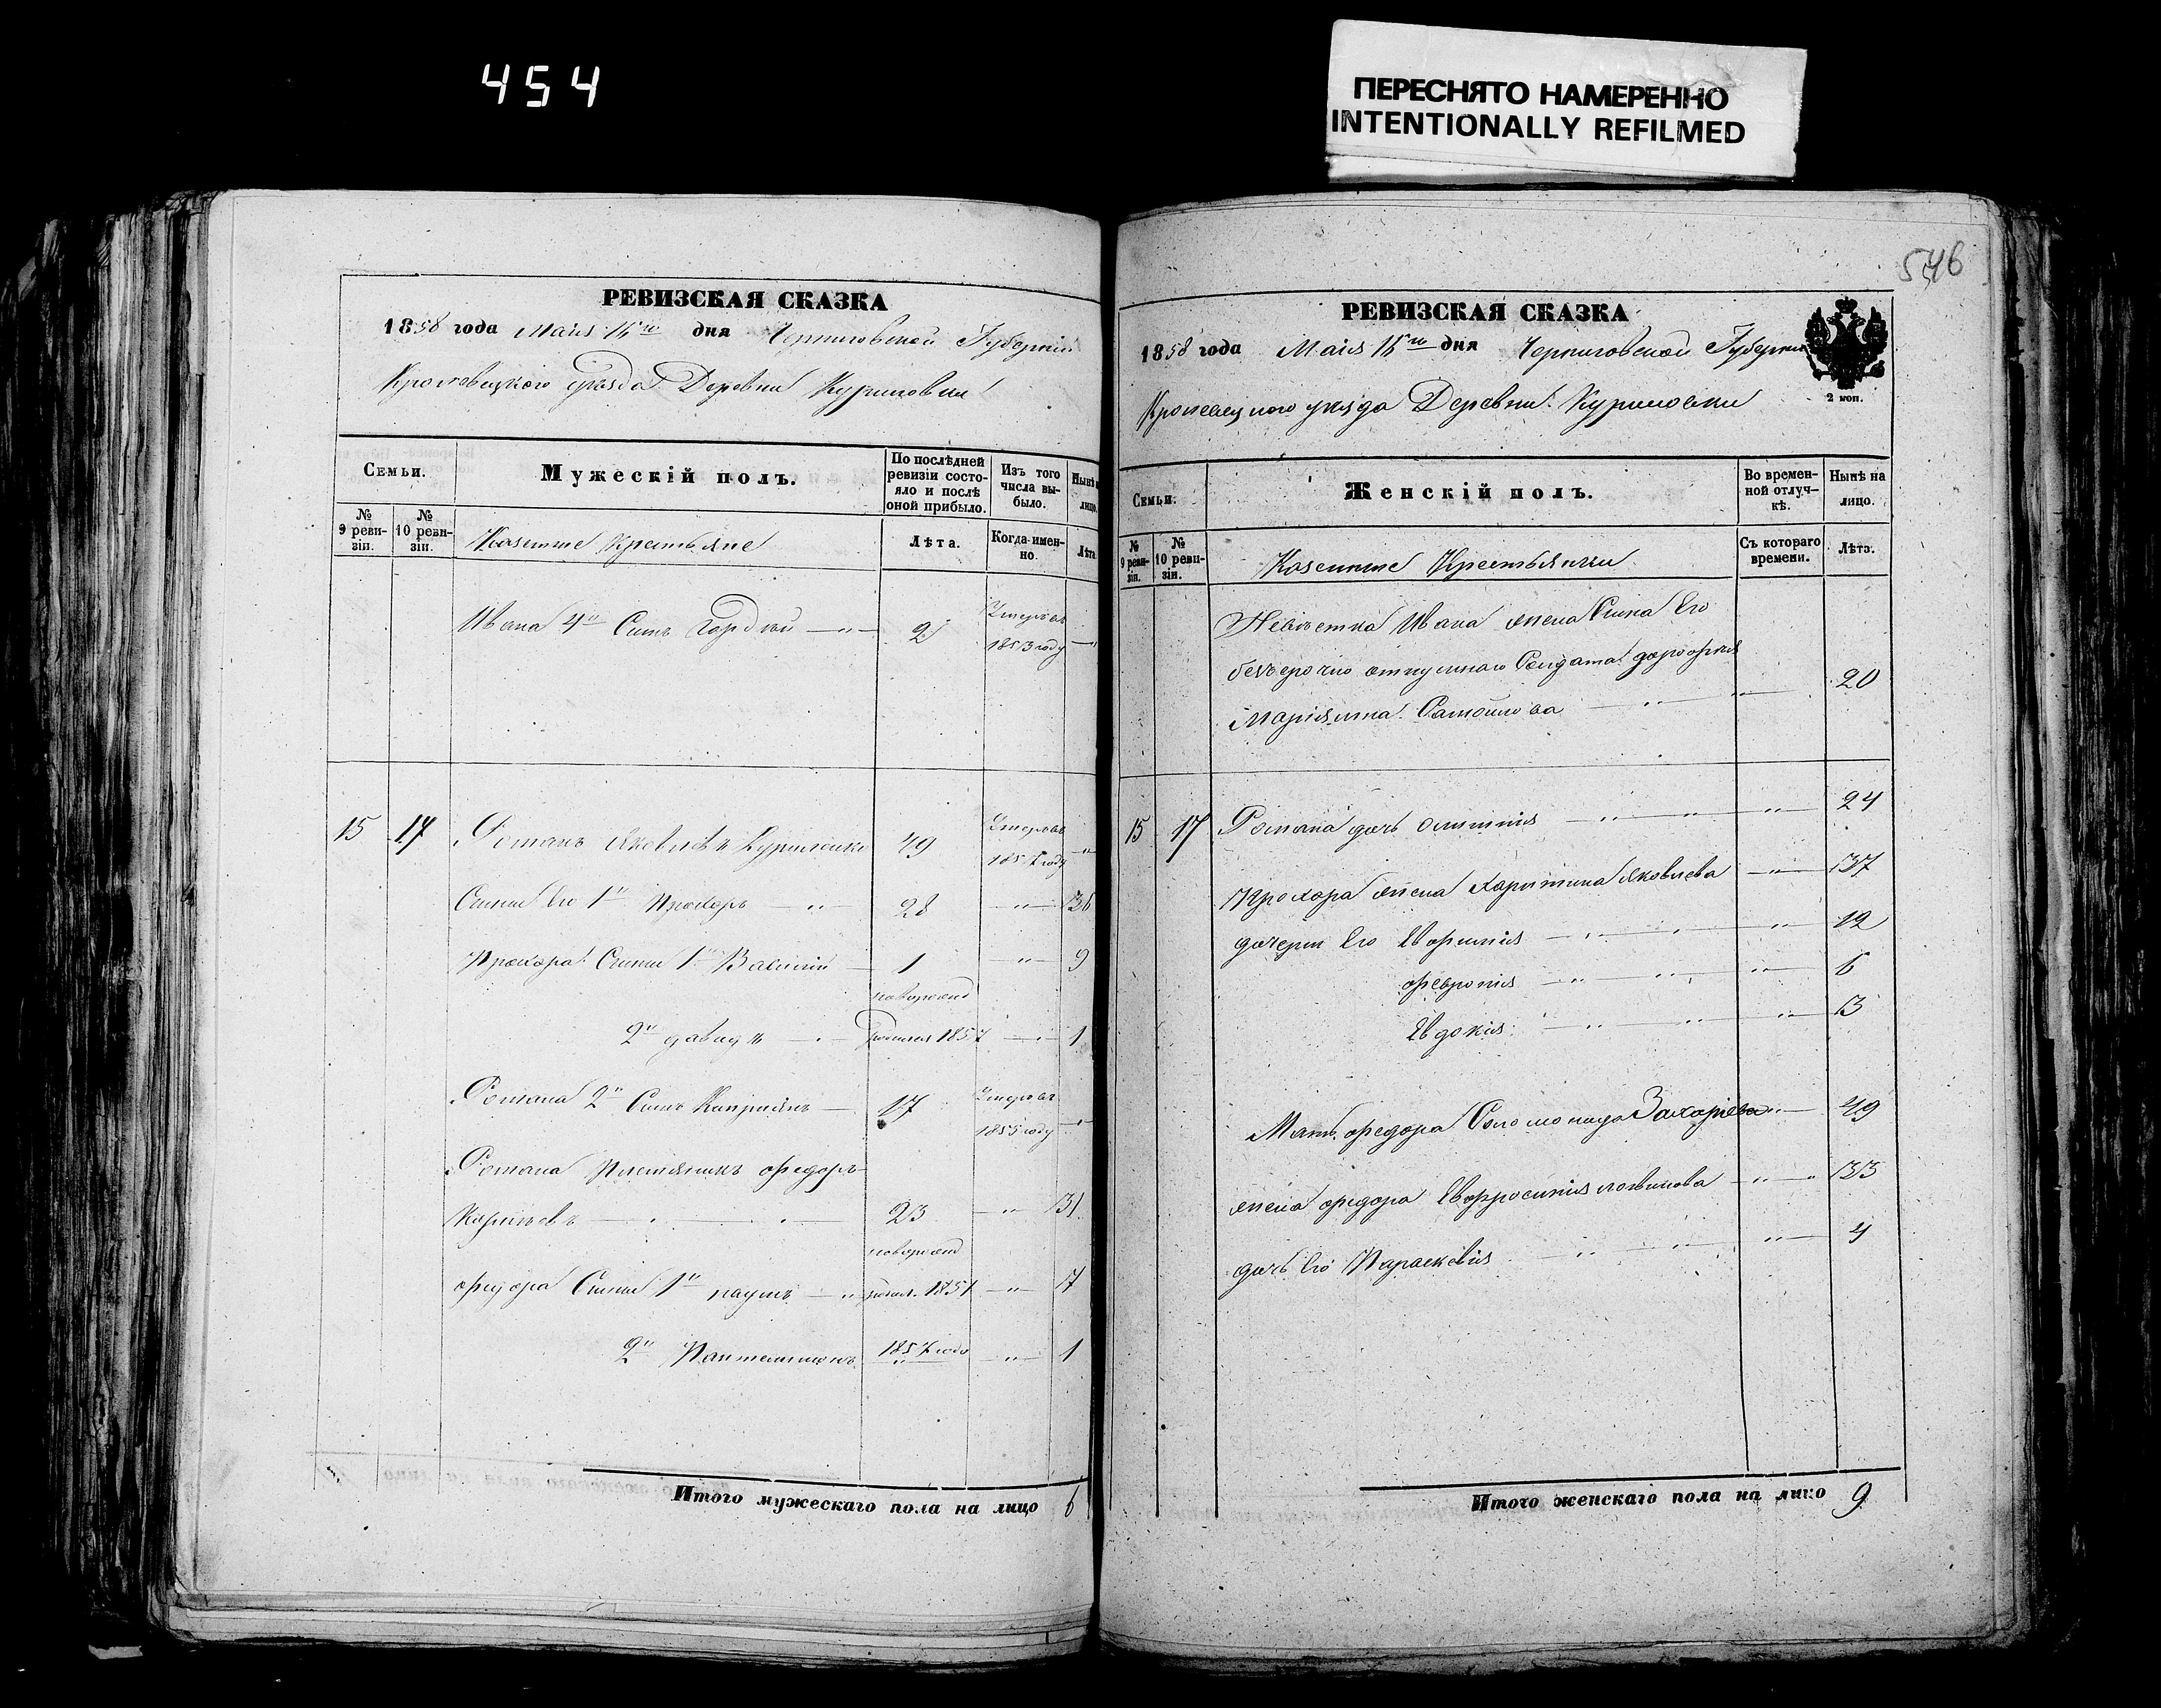 454
ПЕРЕСНЯТО НАМЕРЕННО
INTENTIONALLY REFILMED
РЕВИЗСКАЯ СКАЗКА
1858 года Мая 15го дня Черниговской Губернии
Кролевецкого уѣзда Деревни Куриловки
Семьи.
Мужескій полъ.
По послѣдней ревизіи состояло и послѣ оной прибыло.
Изъ того числа выбыло.
Нынѣ на лицо.
№ 9 ревизіи.
№ 10 ревизіи.
Казенные Крестьяне
Лѣта.
Когда именно.
Лѣта
Ивана 4й Сынъ Гордѣй 2 Умеръ въ
1853 году
15 17 Романъ Яковлевъ Куриленко 49 Умеръ въ
1857 году
Сыны Его 1й Прохоръ 28 36
Прохора Сыны 1й Василий 1 9
новорожд
2й давидъ родился 1857 1
Романа 2й Сынъ Киприянъ 17 Умеръ въ
1855 году
Романа Племянникъ Федоръ
Карпѣевъ 23 31
новорожд
Федора Сыны 1й наумъ родил. 1851 7
2й Пантелимонъ 1857 года 1
Итого мужескаго пола на лицо 6
546
РЕВИЗСКАЯ СКАЗКА
1858 года Мая 15го дня Черниговской Губернии
2 коп.
Кролевецкого уѣзда Деревни Куриловки
Семьи.
Женскій полъ.
Во временной отлучкѣ.
Нынѣ на лицо.
№ 9 ревизіи.
№ 10 ревизіи.
Казенные Крестьянки
Съ котораго времени.
Лѣта.
Невѣстка Ивана жена Сына Его
безсрочно отпускнаго Солдата дорофея
Мариянна Самойлова 20
15 17 Романа дочь Олимпия 24
Прохора жена Харитина Яковлева 37
дочери Его Евфимия 12
Феврония 6
Евдокия 3
Мать Федора Соломонида Захариева 49
жена Федора Евфросиния логвинова 33
дочь Его Параскевия 4
Итого женскаго пола на лицо 9